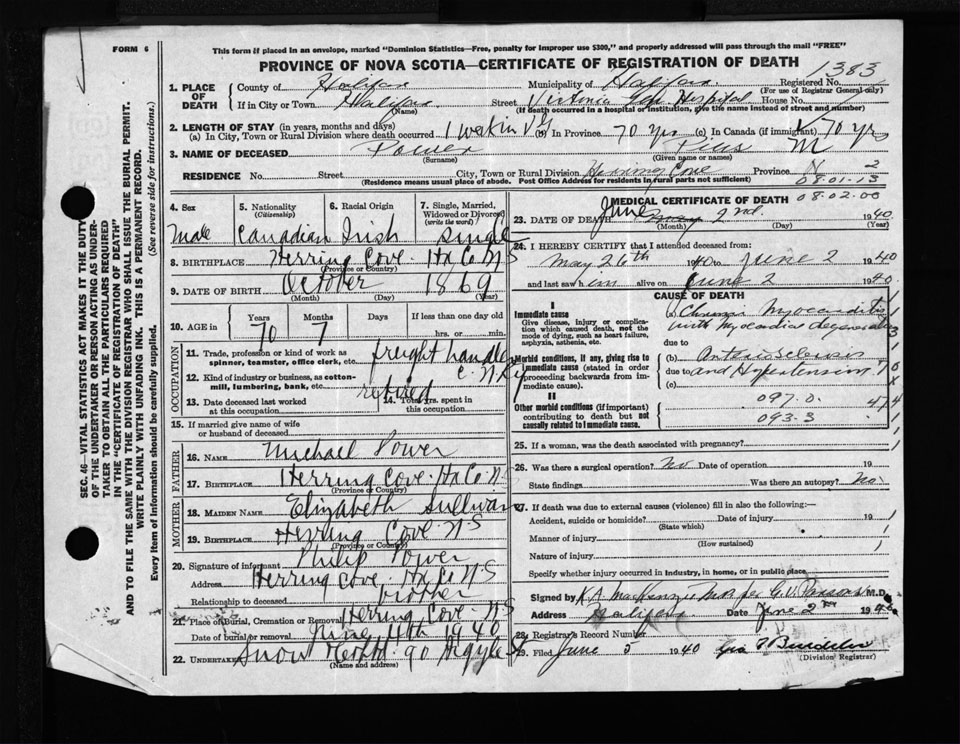 FORM 6
This form if placed in an envelope, marked "Dominion Statistics—Free, penalty for improper use $300," and properly addressed will pass through the mail "FREE"
PROVINCE OF NOVA SCOTIA—CERTIFICATE OF REGISTRATION OF DEATH
1383
1. PLACE OF DEATH County of Halifax Municipality of Halifax Registered No.
(For use of Registrar General only)
If in City or Town Halifax Street Victoria Gen Hospital House No.
(Name) (If death occurred in a hospital or institution, give the name instead of street and number)
2. LENGTH OF STAY (in years, months and days)
(a) In City, Town or Rural Division where death occurred 1 week in VG (b) In Province 70 yrs (c) In Canada (if immigrant) 70 yrs
3. NAME OF DECEASED Power Pius M
(Surname) (Given name or names)
RESIDENCE No. Street City, Town or Rural Division Herring Cove Province N 2
(Residence means usual place of abode. Post Office Address for residents in rural parts not sufficient) 08.01.13
08.02.00
4. Sex 5. Nationality (Citizenship) 6. Racial Origin 7. Single, Married, Widowed or Divorced (write the word)
Male Canadian Irish Single
8. BIRTHPLACE Herring Cove Hx Co NS
(Province or Country)
9. DATE OF BIRTH October 1869
(Month) (Day) (Year)
10. AGE in Years Months Days If less than one day old
70 7 hrs. or min.
OCCUPATION
11. Trade, profession or kind of work as spinner, teamster, office clerk, etc. freight handler
12. Kind of industry or business, as cotton-mill, lumbering, bank, etc. C.N.Ry
retired
13. Date deceased last worked at this occupation 14. Total yrs. spent in this occupation
15. If married give name of wife or husband of deceased
FATHER
16. NAME Michael Power
17. BIRTHPLACE Herring Cove Hx Co NS
(Province or Country)
MOTHER
18. MAIDEN NAME Elizabeth Sullivan
19. BIRTHPLACE Herring Cove NS
(Province or Country)
20. Signature of informant Philip Power
Address Herring Cove Hx Co NS
Relationship to deceased brother
21. Place of Burial, Cremation or Removal Herring Cove NS
Date of burial or removal 4th 1940
22. UNDERTAKER Snow 90 Argyle St
(Name and address)
MEDICAL CERTIFICATE OF DEATH
23. DATE OF DEATH June May 2nd 1940
(Month) (Day) (Year)
24. I HEREBY CERTIFY that I attended deceased from:
May 26th 1940 to June 2 1940
and last saw him alive on June 2 1940
CAUSE OF DEATH
I
Immediate cause
Give disease, injury or complication which caused death, not the mode of dying, such as heart failure, asphyxia, asthenia, etc.
(a) Chronic Myocarditis
with Myocardial degeneration
due to
Morbid conditions, if any, giving rise to immediate cause (stated in order proceeding backwards from immediate cause).
(b) Arteriosclerosis
due to and Hypertension
(c)
II
Other morbid conditions (if important) contributing to death but not causally related to immediate cause.
097.0
093.3
474
25. If a woman, was the death associated with pregnancy?
26. Was there a surgical operation? No Date of operation 19
State findings Was there an autopsy? No
27. If death was due to external causes (violence) fill in also the following:—
Accident, suicide or homicide? Date of injury 19
(State which)
Manner of injury
(How sustained)
Nature of injury
Specify whether injury occurred in industry, in home, or in public place
Signed by K A MacKenzie per G.V. Parsons M.D.
Address Halifax Date June 2nd 1940
28. Registrar's Record Number
29. Filed June 5 1940
(Division Registrar)
SEC. 46—VITAL STATISTICS ACT MAKES IT THE DUTY
OF THE UNDERTAKER OR PERSON ACTING AS UNDER-
TAKER TO OBTAIN ALL THE PARTICULARS REQUIRED
IN THE "CERTIFICATE OF REGISTRATION OF DEATH"
AND TO FILE THE SAME WITH THE DIVISION REGISTRAR WHO SHALL ISSUE THE BURIAL PERMIT.
WRITE PLAINLY WITH UNFADING INK. THIS IS A PERMANENT RECORD.
Every item of Information should be carefully supplied. (See reverse side for instructions.)